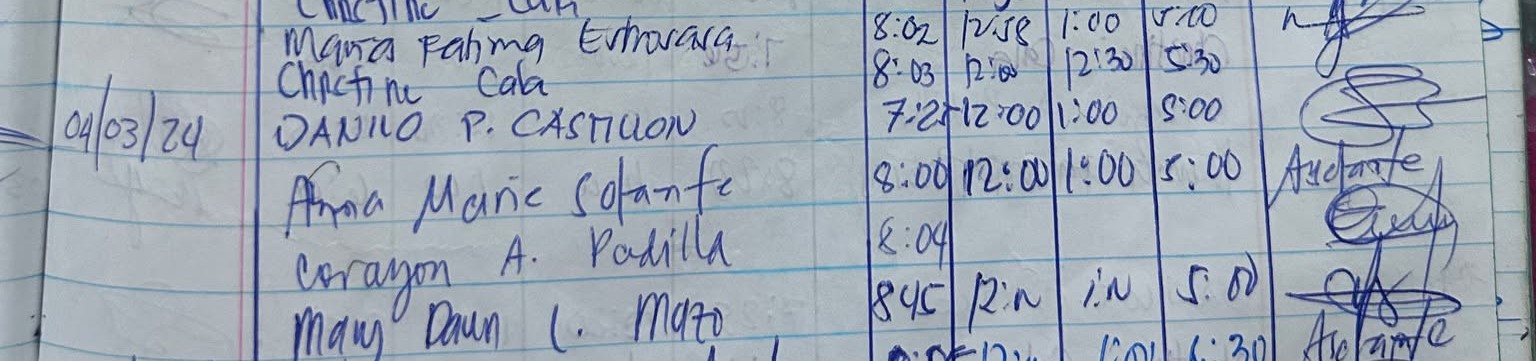 Maria Fatima Extrosasa 8:02 12:58 1:00 5:00
Christine Cala 8:03 12:00 12:30 5:30
04/03/24 DANILO P. CASTILLON 7:25 12:00 1:00 5:00
Anna Marie Solante 8:00 12:00 1:00 5:00 Asolante
Corazon A. Padilla 8:04
Mary Dawn L. Mazo 845 12:N 1:N 5:00
Asolante